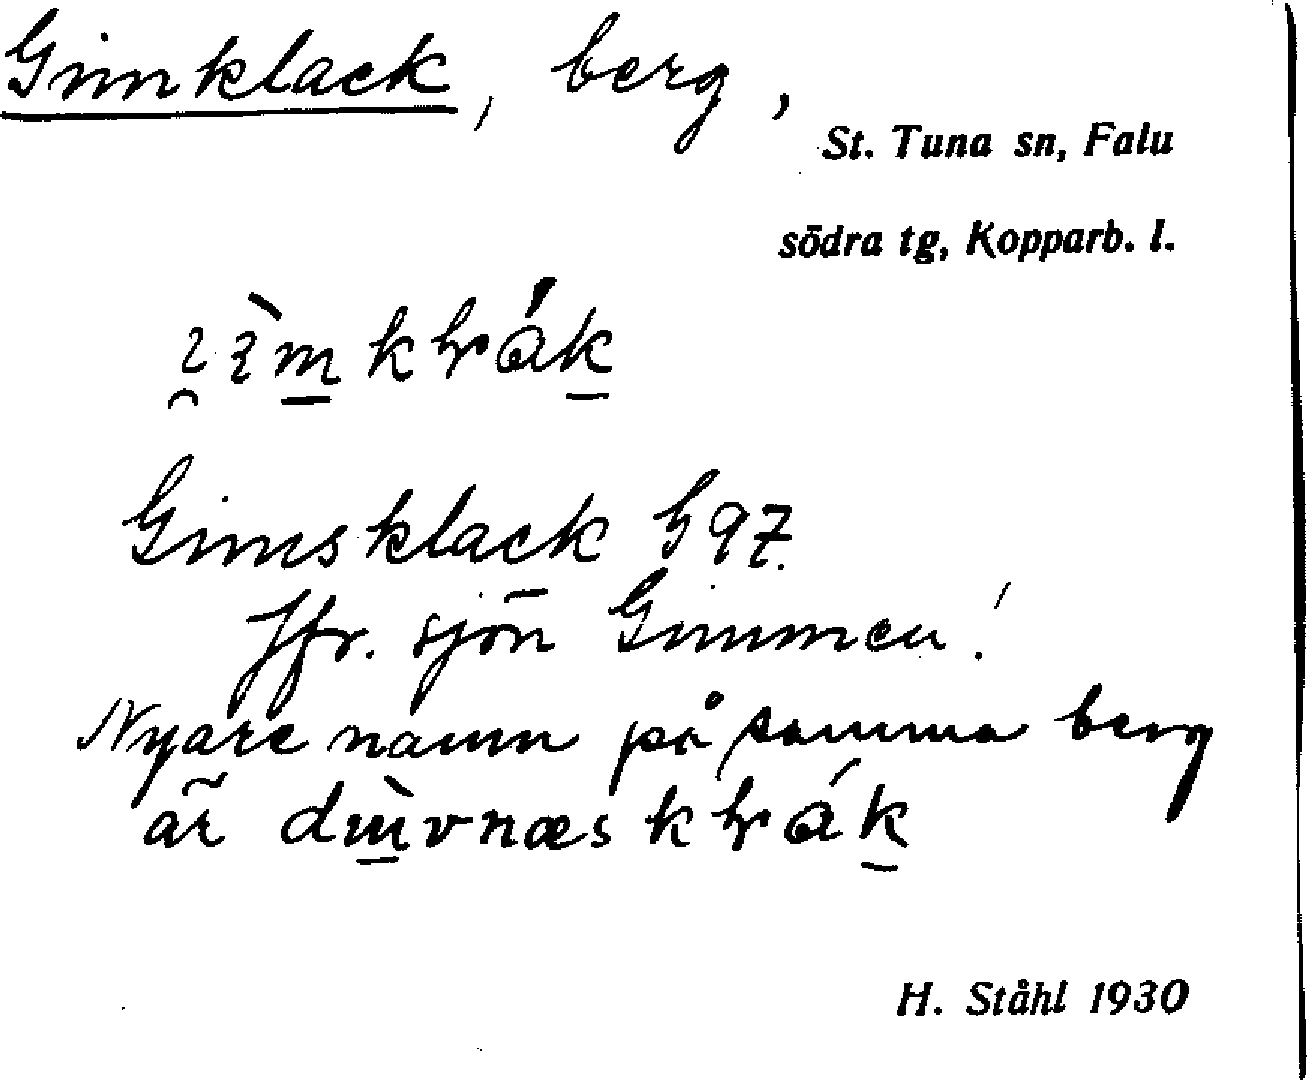 Gimklack, berg,
St. Tuna sn, Falu
södra tg, Kopparb. l.
Gimsklack h 97.
Jfr. sjön Gimmen!
Nyare namn på samma berg
är
H. Ståhl 1930